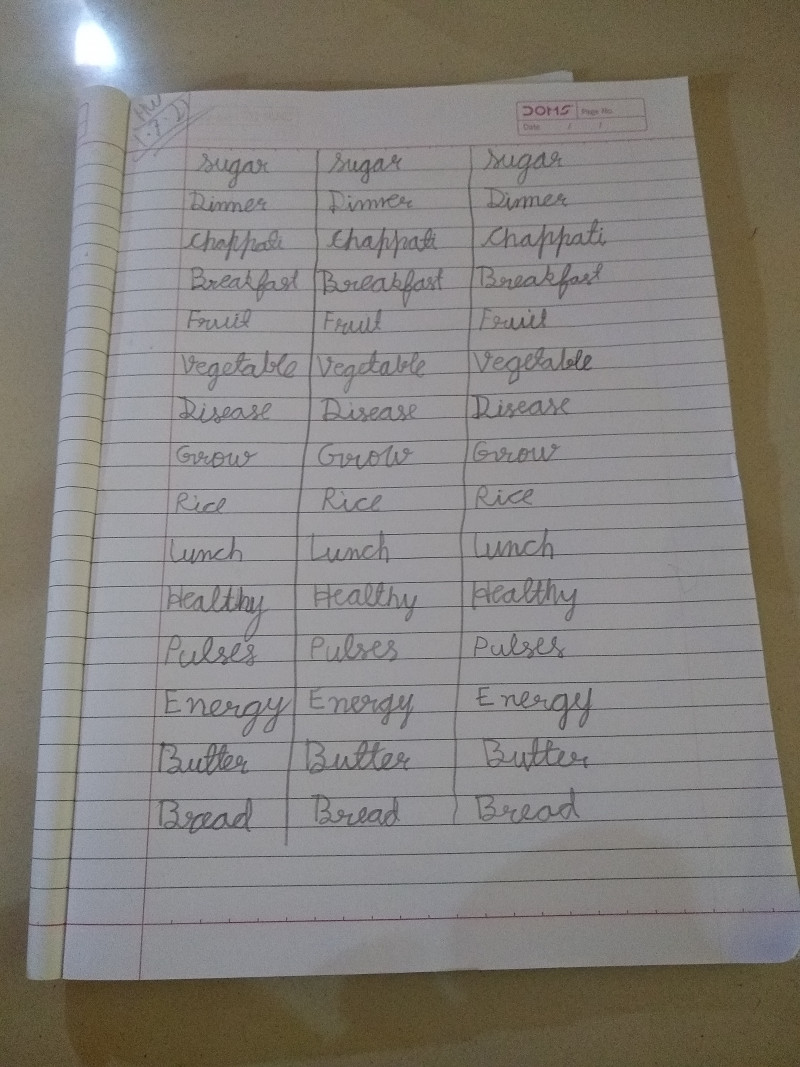 HW
DOMS Page No.
Date / /
Sugar Sugar Sugar
Dinner Dinner Dinner
Chappati Chappati Chappati
Breakfast Breakfast Breakfast
Fruit Fruit Fruit
Vegetable Vegetable Vegetable
Disease Disease Disease
Grow Grow Grow
Rice Rice Rice
Lunch Lunch Lunch
Healthy Healthy Healthy
Pulses Pulses Pulses
Energy Energy Energy
Butter Butter Butter
Bread Bread Bread